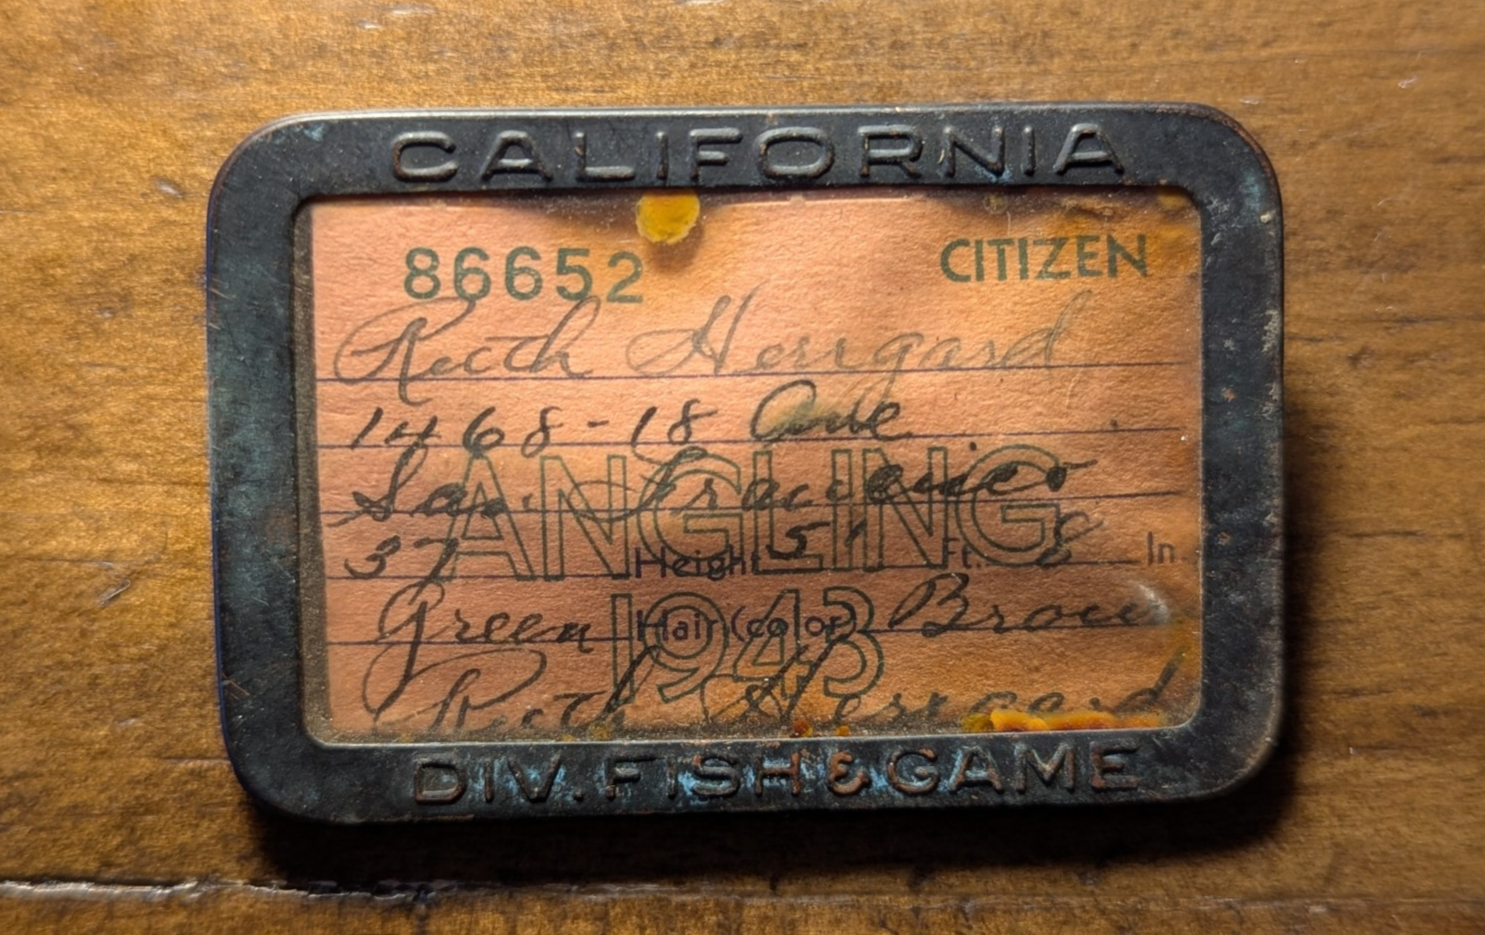 CALIFORNIA
86652 CITIZEN
Ruth Herrgard
1468-18 Ave
San Francisco
ANGLING
37 Height 5' Ft. 8 In
1943
Green Hair (color) Brown
Ruth Herrgard
DIV. FISH & GAME